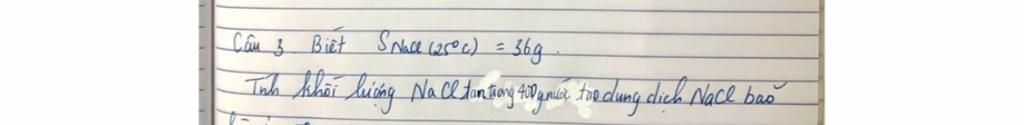 Câu 3 Biết S NaCl (25°C) = 36g.
Tính khối lượng NaCl tan trong 400g nước tạo dung dịch NaCl bão